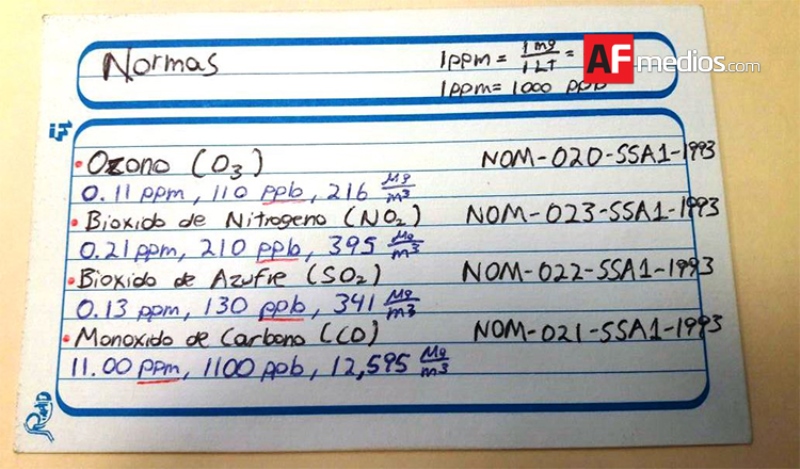 Normas
1ppm = 1 mg / 1 LT =
1ppm = 1000 ppb
AFmedios.com
• Ozono (O₃) NOM-020-SSA1-1993
0.11 ppm, 110 ppb, 216 Mg/m³
• Bioxido de Nitrogeno (NO₂) NOM-023-SSA1-1993
0.21 ppm, 210 ppb, 395 Mg/m³
• Bioxido de Azufre (SO₂) NOM-022-SSA1-1993
0.13 ppm, 130 ppb, 341 Mg/m³
• Monoxido de Carbono (CO) NOM-021-SSA1-1993
11.00 ppm, 1100 ppb, 12,595 Mg/m³